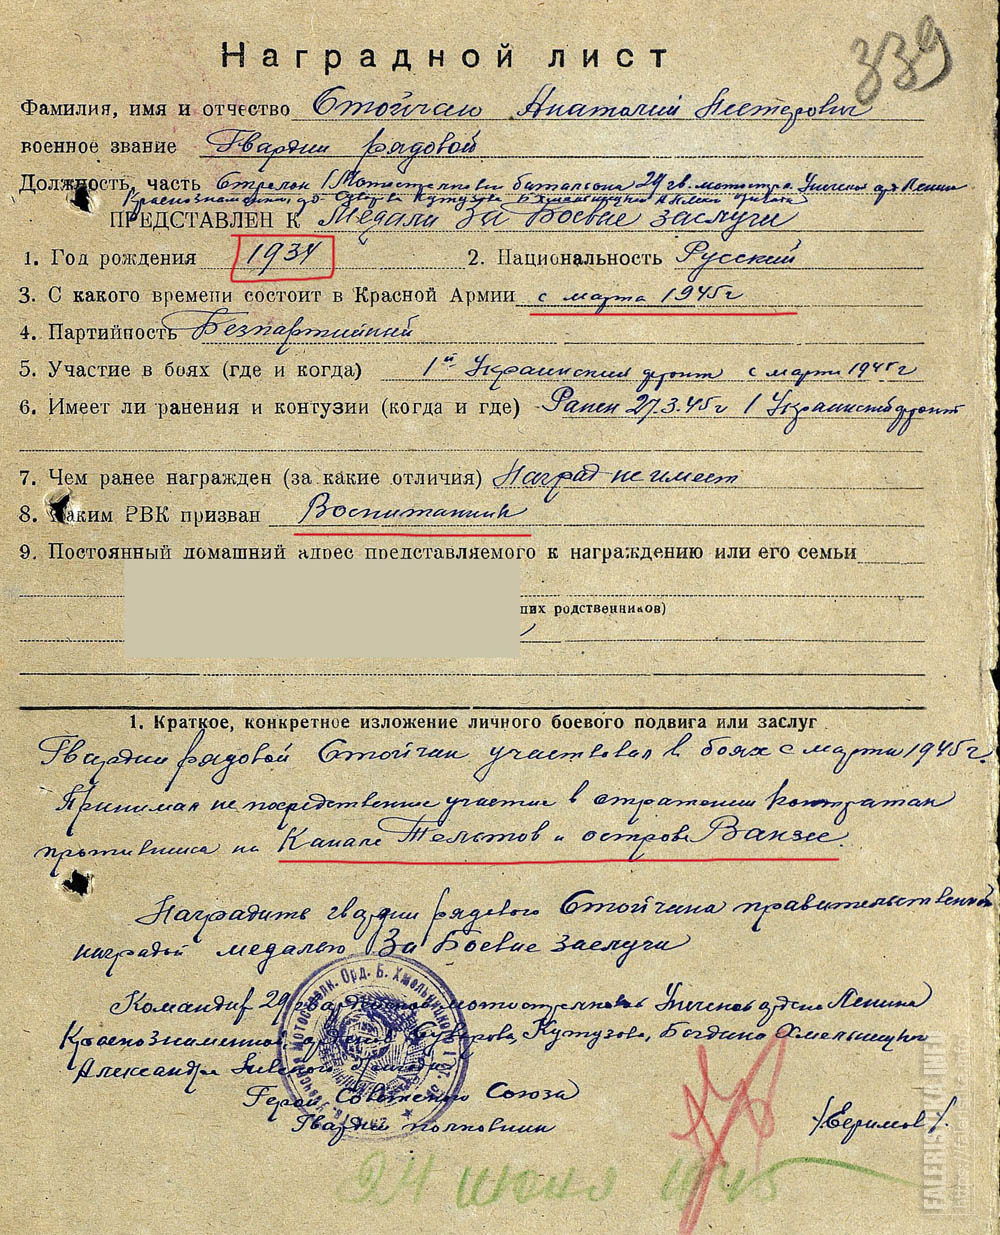 339
Наградной лист
Фамилия, имя и отчество Стойчан Анатолий Нестерович
военное звание Гвардии рядовой
Должность, часть Стрелок 1 Мотострелкового батальона 29 гв. мотостр. Унечской орд. Ленина
Краснознаменной, Суворова Кутузова Б Хмельницкого А Невского
ПРЕДСТАВЛЕН К Медали За Боевые заслуги
1. Год рождения 1934 2. Национальность Русский
3. С какого времени состоит в Красной Армии с марта 1945г
4. Партийность Безпартийный
5. Участие в боях (где и когда) 1й Украинский фронт с марта 1945г
6. Имеет ли ранения и контузии (когда и где) Ранен 27.3.45г 1 Украинский фронт
7. Чем ранее награжден (за какие отличия) Наград не имеет
8. Каким РВК призван Воспитанник
9. Постоянный домашний адрес представляемого к награждению или его семьи
ших родственников)
1. Краткое, конкретное изложение личного боевого подвига или заслуг
Гвардии рядовой Стойчан участвовал в боях с марта 1945г.
Принимал непосредственное участие в отражении контратак
противника на Канале Тельтов и острове Ванзее.
Наградить гвардии рядового Стойчана правительственной
наградой медалью За Боевые заслуги
Командир 29 гвардейской мотострелковой Унечской ордена Ленина
Краснознаменной, Суворова, Кутузова, Богдана Хмельницкого
Александра Невского бригады
Герой Советского Союза
Гвардии полковник /Ефимов/.
Мотострелк. Орд. Б. Хмельницкого
24 июня 1945
FALERISTIKA.INFO